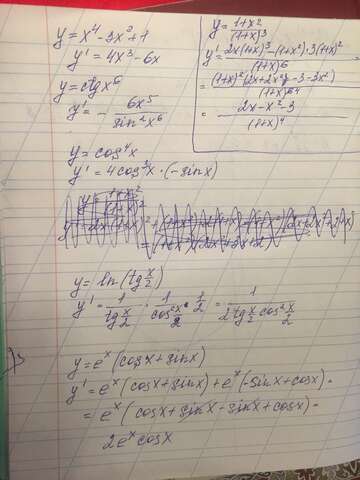 y = x⁴ - 3x² + 1
y' = 4x³ - 6x
y = ctg x⁶
y' = - 6x⁵ / sin² x⁶
y = cos⁴x
y' = 4cos³x · (-sinx)
y = ln(tg x/2)
y' = 1 / tg x/2 · 1 / cos² x/2 · 1/2 = 1 / 2tg x/2 cos² x/2
y = eˣ(cosx + sinx)
y' = eˣ(cosx + sinx) + eˣ(-sinx + cosx) =
= eˣ(cosx + sinx - sinx + cosx) =
2eˣ cosx
y = 1+x² / (1+x)³
y' = 2x(1+x)³ - (1+x²)·3(1+x)² / (1+x)⁶ =
= (1+x)²(2x+2x² - 3 - 3x²) / (1+x)⁶ ⁴
= 2x - x² - 3 / (1+x)⁴